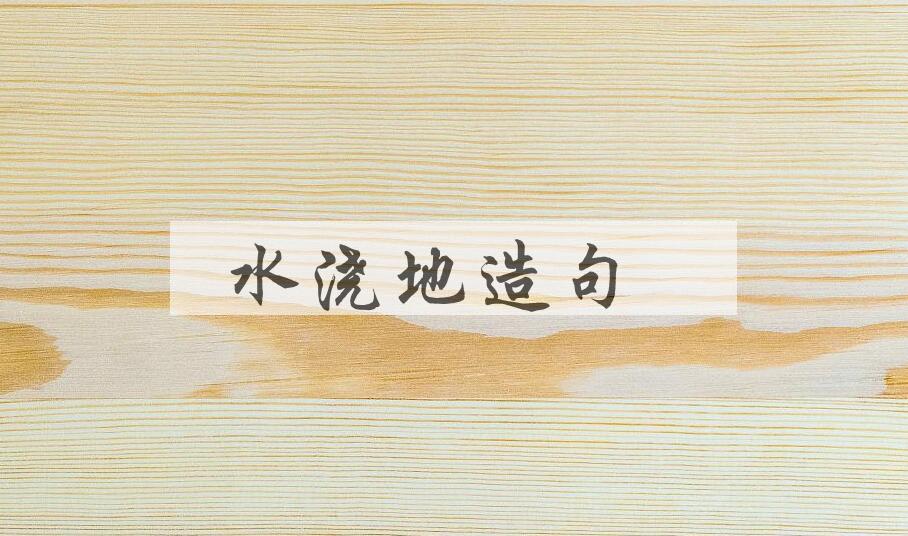 水浇地造句